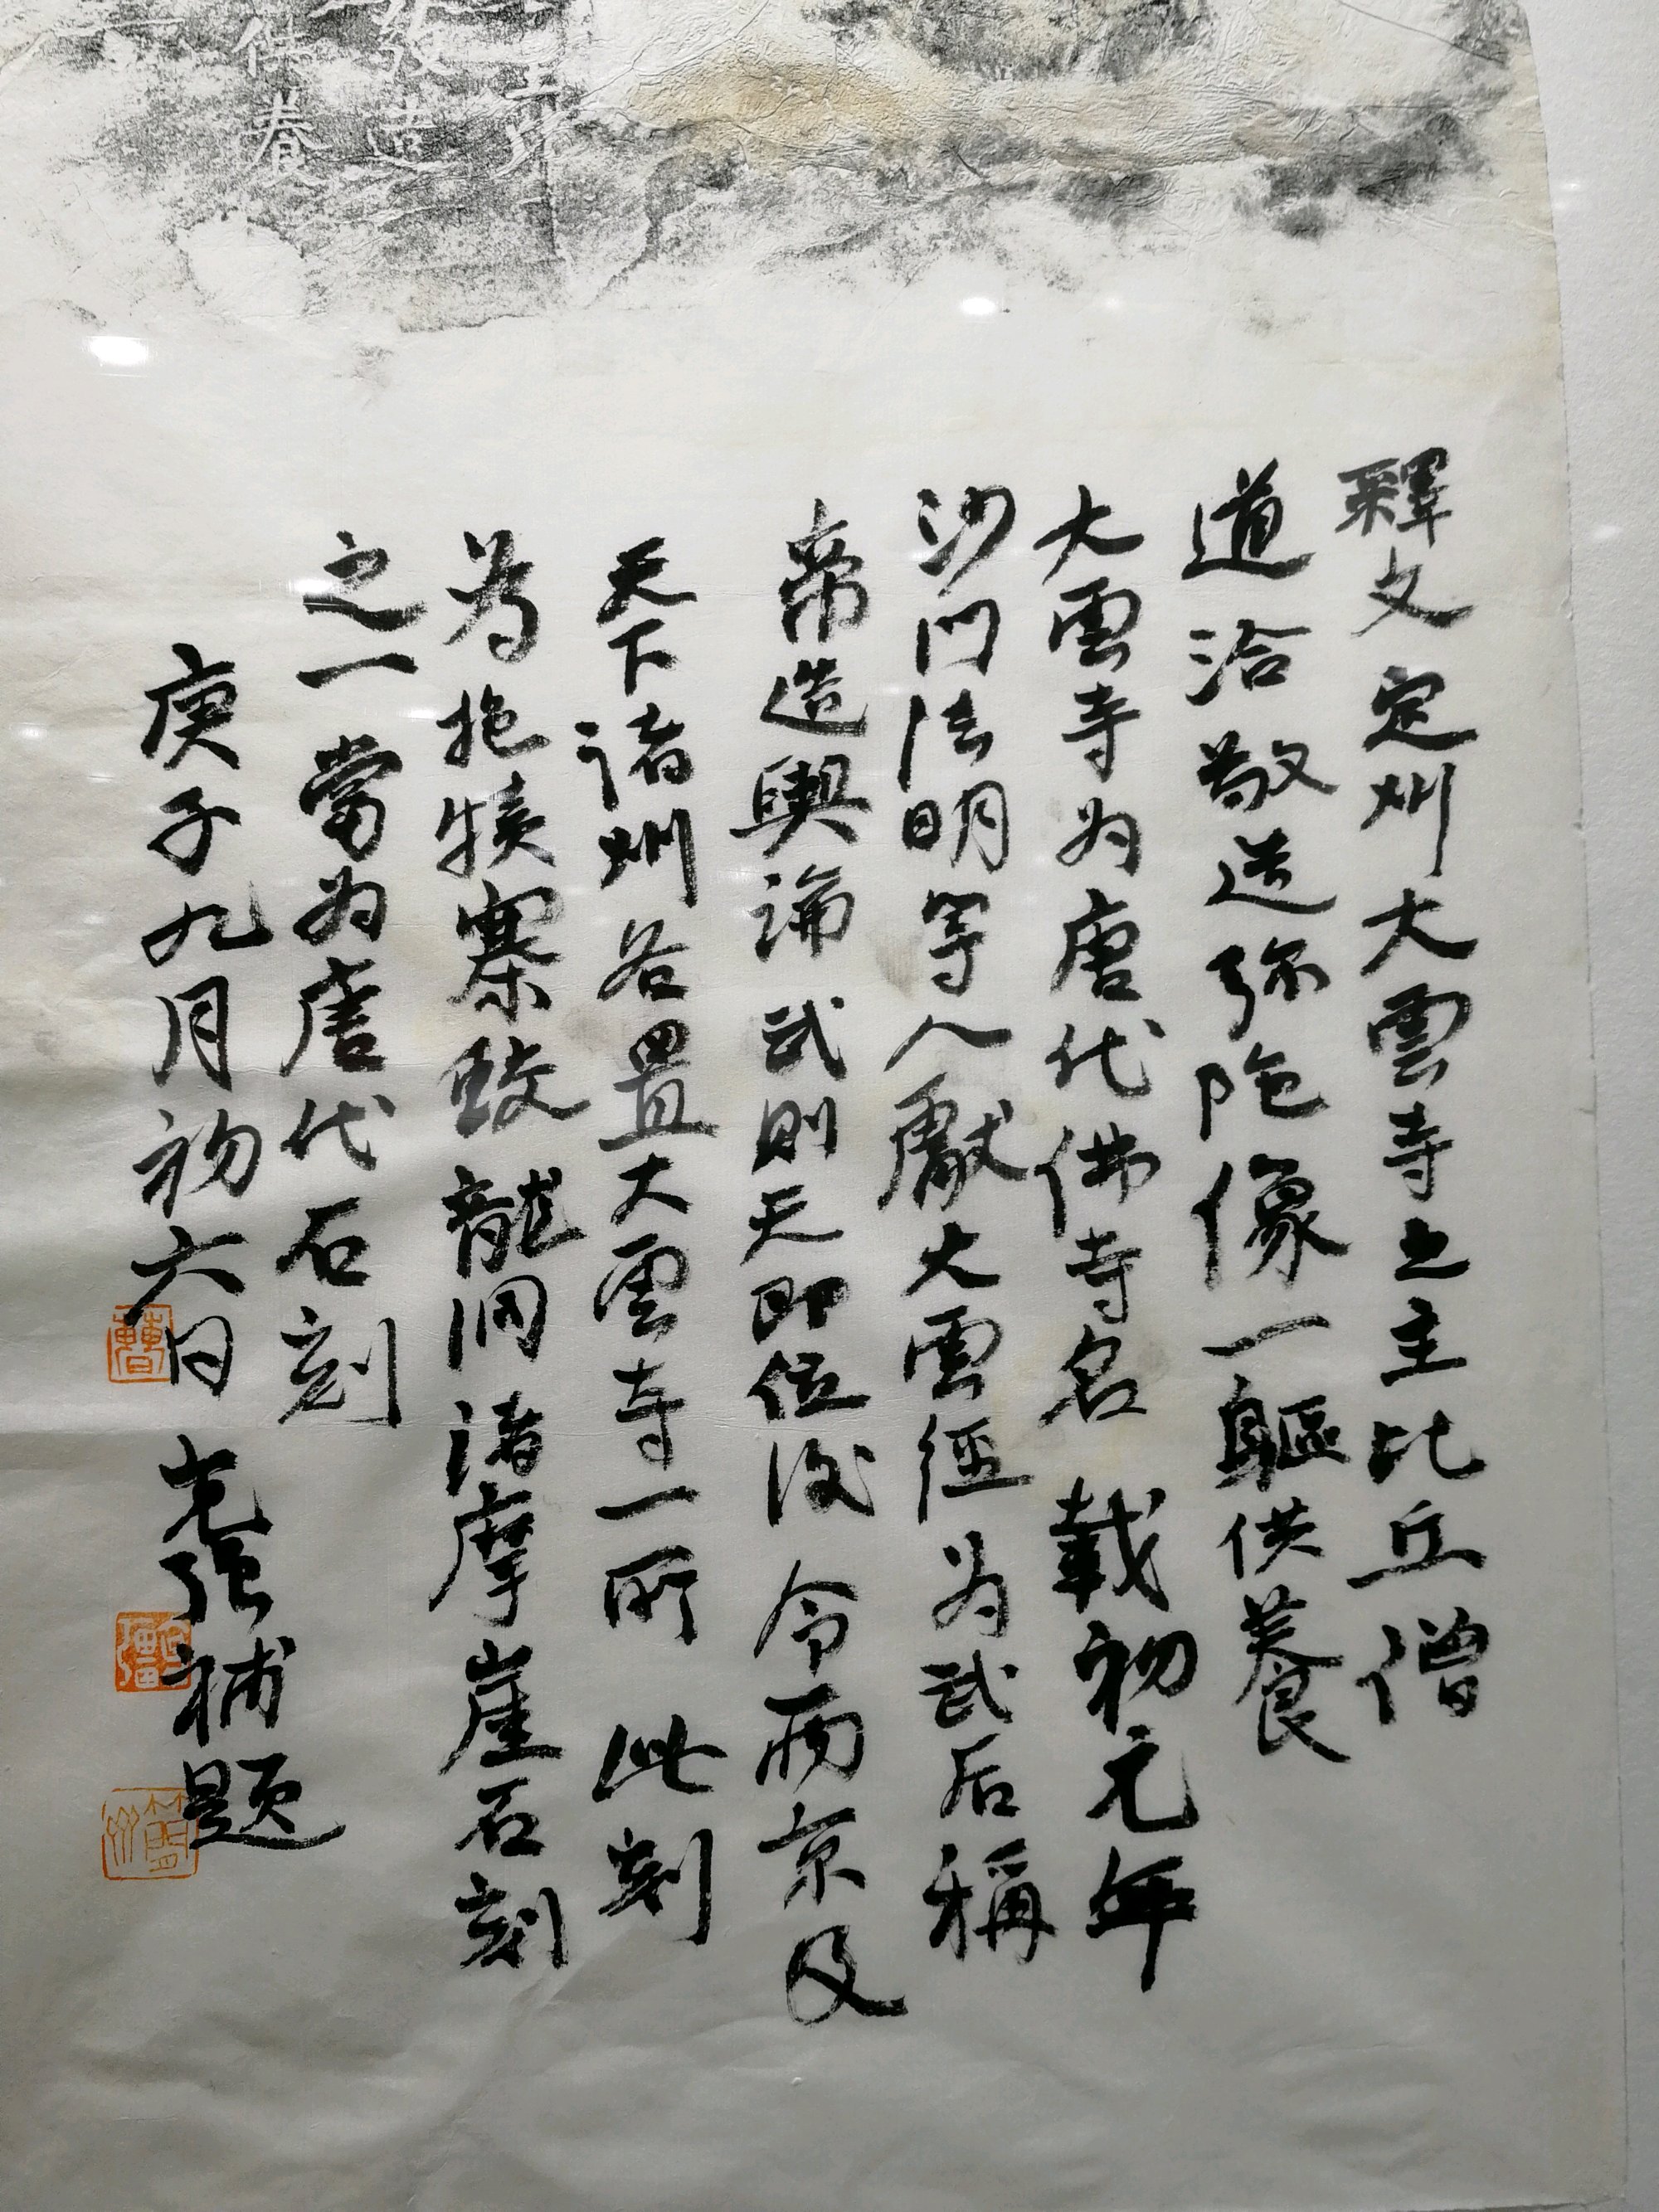 釋文 定州大雲寺上主比丘僧
道洽敬造弥陀像一軀供養
大雲寺为唐代佛寺名 載初元年
沙门法明等人獻大雲經为武后稱
帝造輿論 武則天即位後 令两京及
天下諸州各置大雲寺一所 此刻
為拖犊寨鲛龍洞諸摩崖石刻
之一 當为唐代石刻
庚子九月初六日 克强補題
敬造
供養